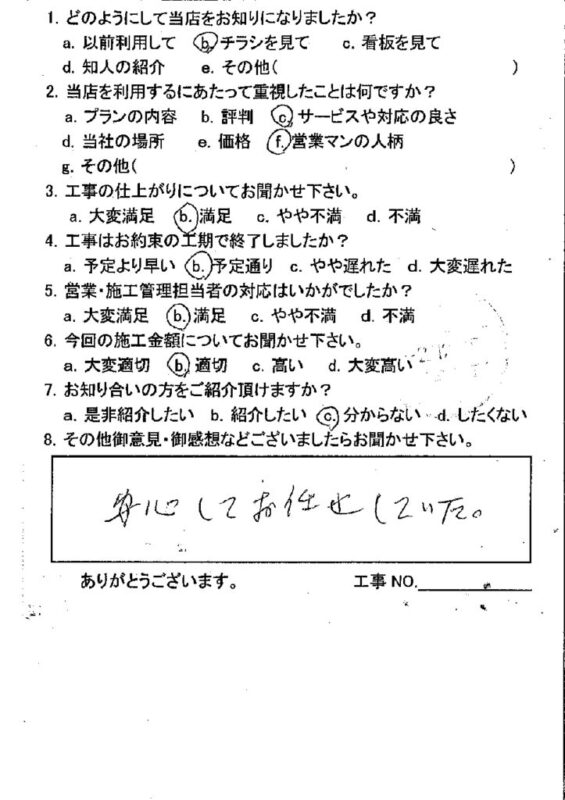 1. どのようにして当店をお知りになりましたか？
a. 以前利用して b. チラシを見て c. 看板を見て
d. 知人の紹介 e. その他( )
2. 当店を利用するにあたって重視したことは何ですか？
a. プランの内容 b. 評判 c. サービスや対応の良さ
d. 当社の場所 e. 価格 f. 営業マンの人柄
g. その他( )
3. 工事の仕上がりについてお聞かせ下さい。
a. 大変満足 b. 満足 c. やや不満 d. 不満
4. 工事はお約束の工期で終了しましたか？
a. 予定より早い b. 予定通り c. やや遅れた d. 大変遅れた
5. 営業・施工管理担当者の対応はいかがでしたか？
a. 大変満足 b. 満足 c. やや不満 d. 不満
6. 今回の施工金額についてお聞かせ下さい。
a. 大変適切 b. 適切 c. 高い d. 大変高い
7. お知り合いの方をご紹介頂けますか？
a. 是非紹介したい b. 紹介したい c. 分からない d. したくない
8. その他御意見・御感想などございましたらお聞かせ下さい。
安心してお任せしていた。
ありがとうございます。 工事 NO.